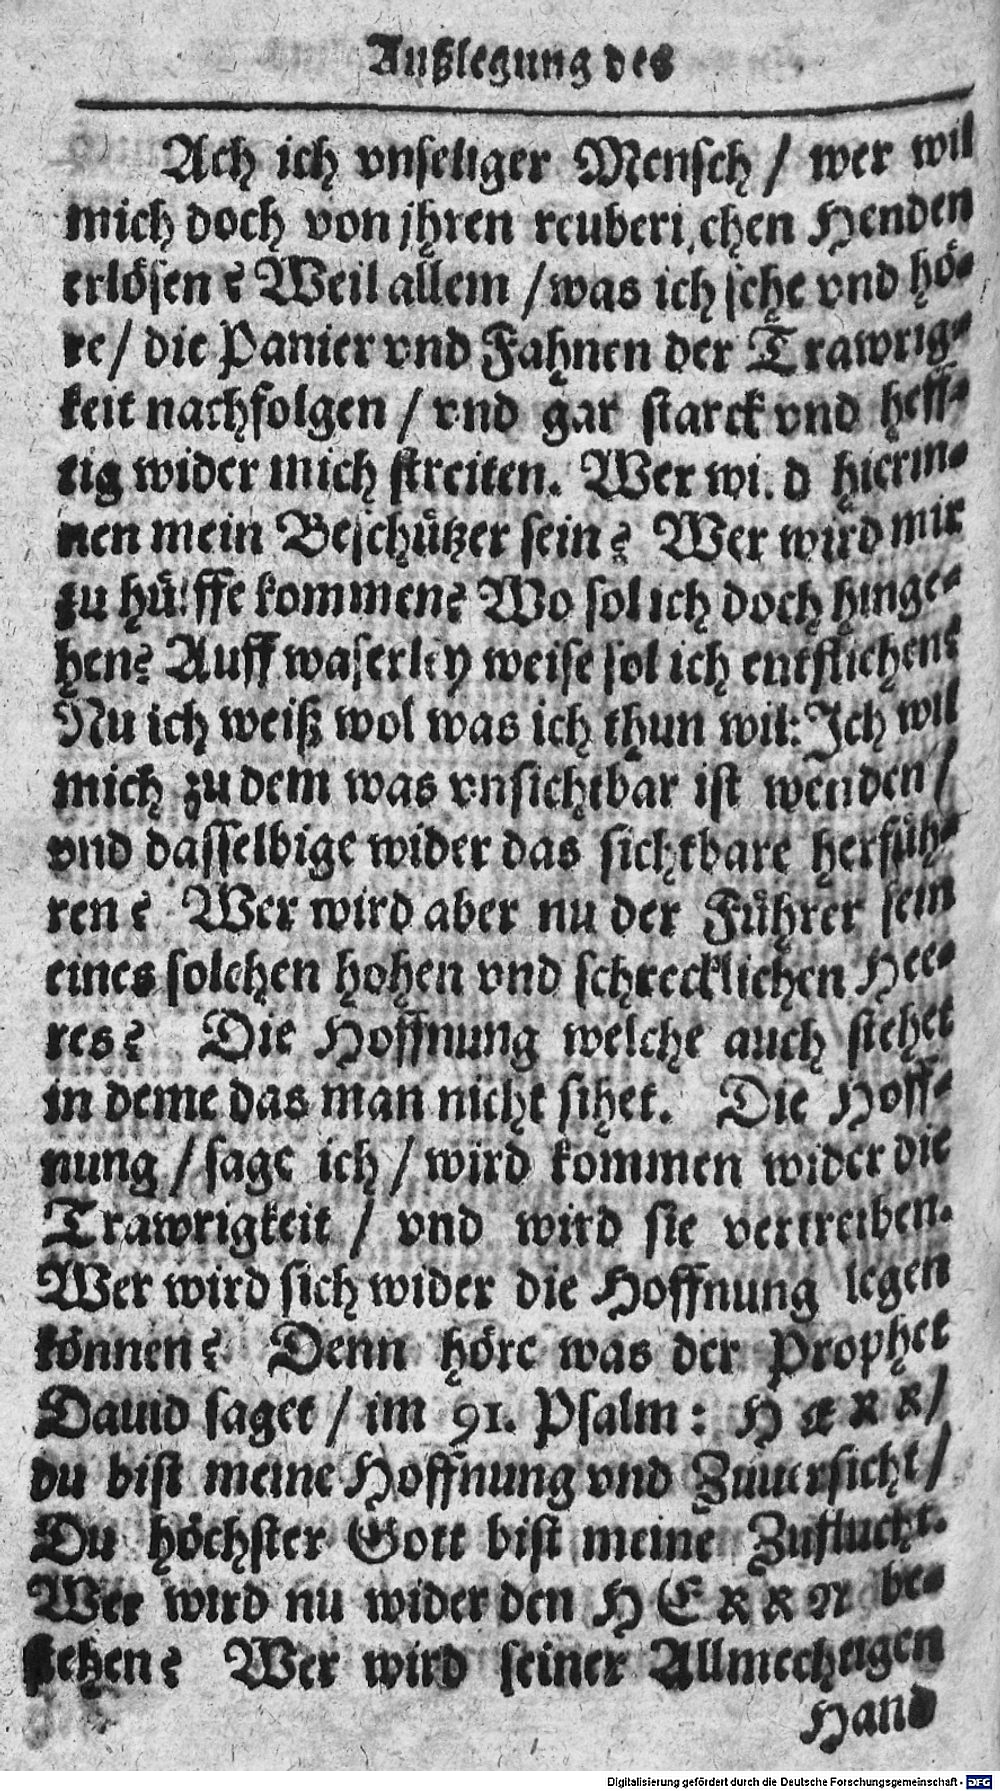 Außlegung des
Ach ich vnseliger Mensch / wer wil
mich doch von jhren reuberischen Henden
erlösen? Weil allem / was ich sehe vnd hö-
re / die Panier vnd Fahnen der Trawrig-
keit nachfolgen / vnd gar starck vnd heff-
tig wider mich streiten. Wer wird hierin-
nen mein Beschützer sein? Wer wird mir
zu hülffe kommen? Wo sol ich doch hinge-
hen? Auff waserley weise sol ich entfliehen?
Nu ich weiß wol was ich thun wil: Ich wil
mich zu dem was vnsichtbar ist wenden /
vnd dasselbige wider das sichtbare herfüh-
ren? Wer wird aber nu der Führer sein
eines solchen hohen vnd schrecklichen Hee-
res? Die Hoffnung welche auch stehet
in deme das man nicht sihet. Die Hoff-
nung / sage ich / wird kommen wider die
Trawrigkeit / vnd wird sie vertreiben.
Wer wird sich wider die Hoffnung legen
können? Denn höre was der Prophet
Dauid saget / im 91. Psalm: HERR /
du bist meine Hoffnung vnd Zuuersicht /
Du höchster Gott bist meine Zuflucht.
Wer wird nu wider den HERRN be-
stehen? Wer wird seiner Allmechtigen
Hand
Digitalisierung gefördert durch die Deutsche Forschungsgemeinschaft - DFG